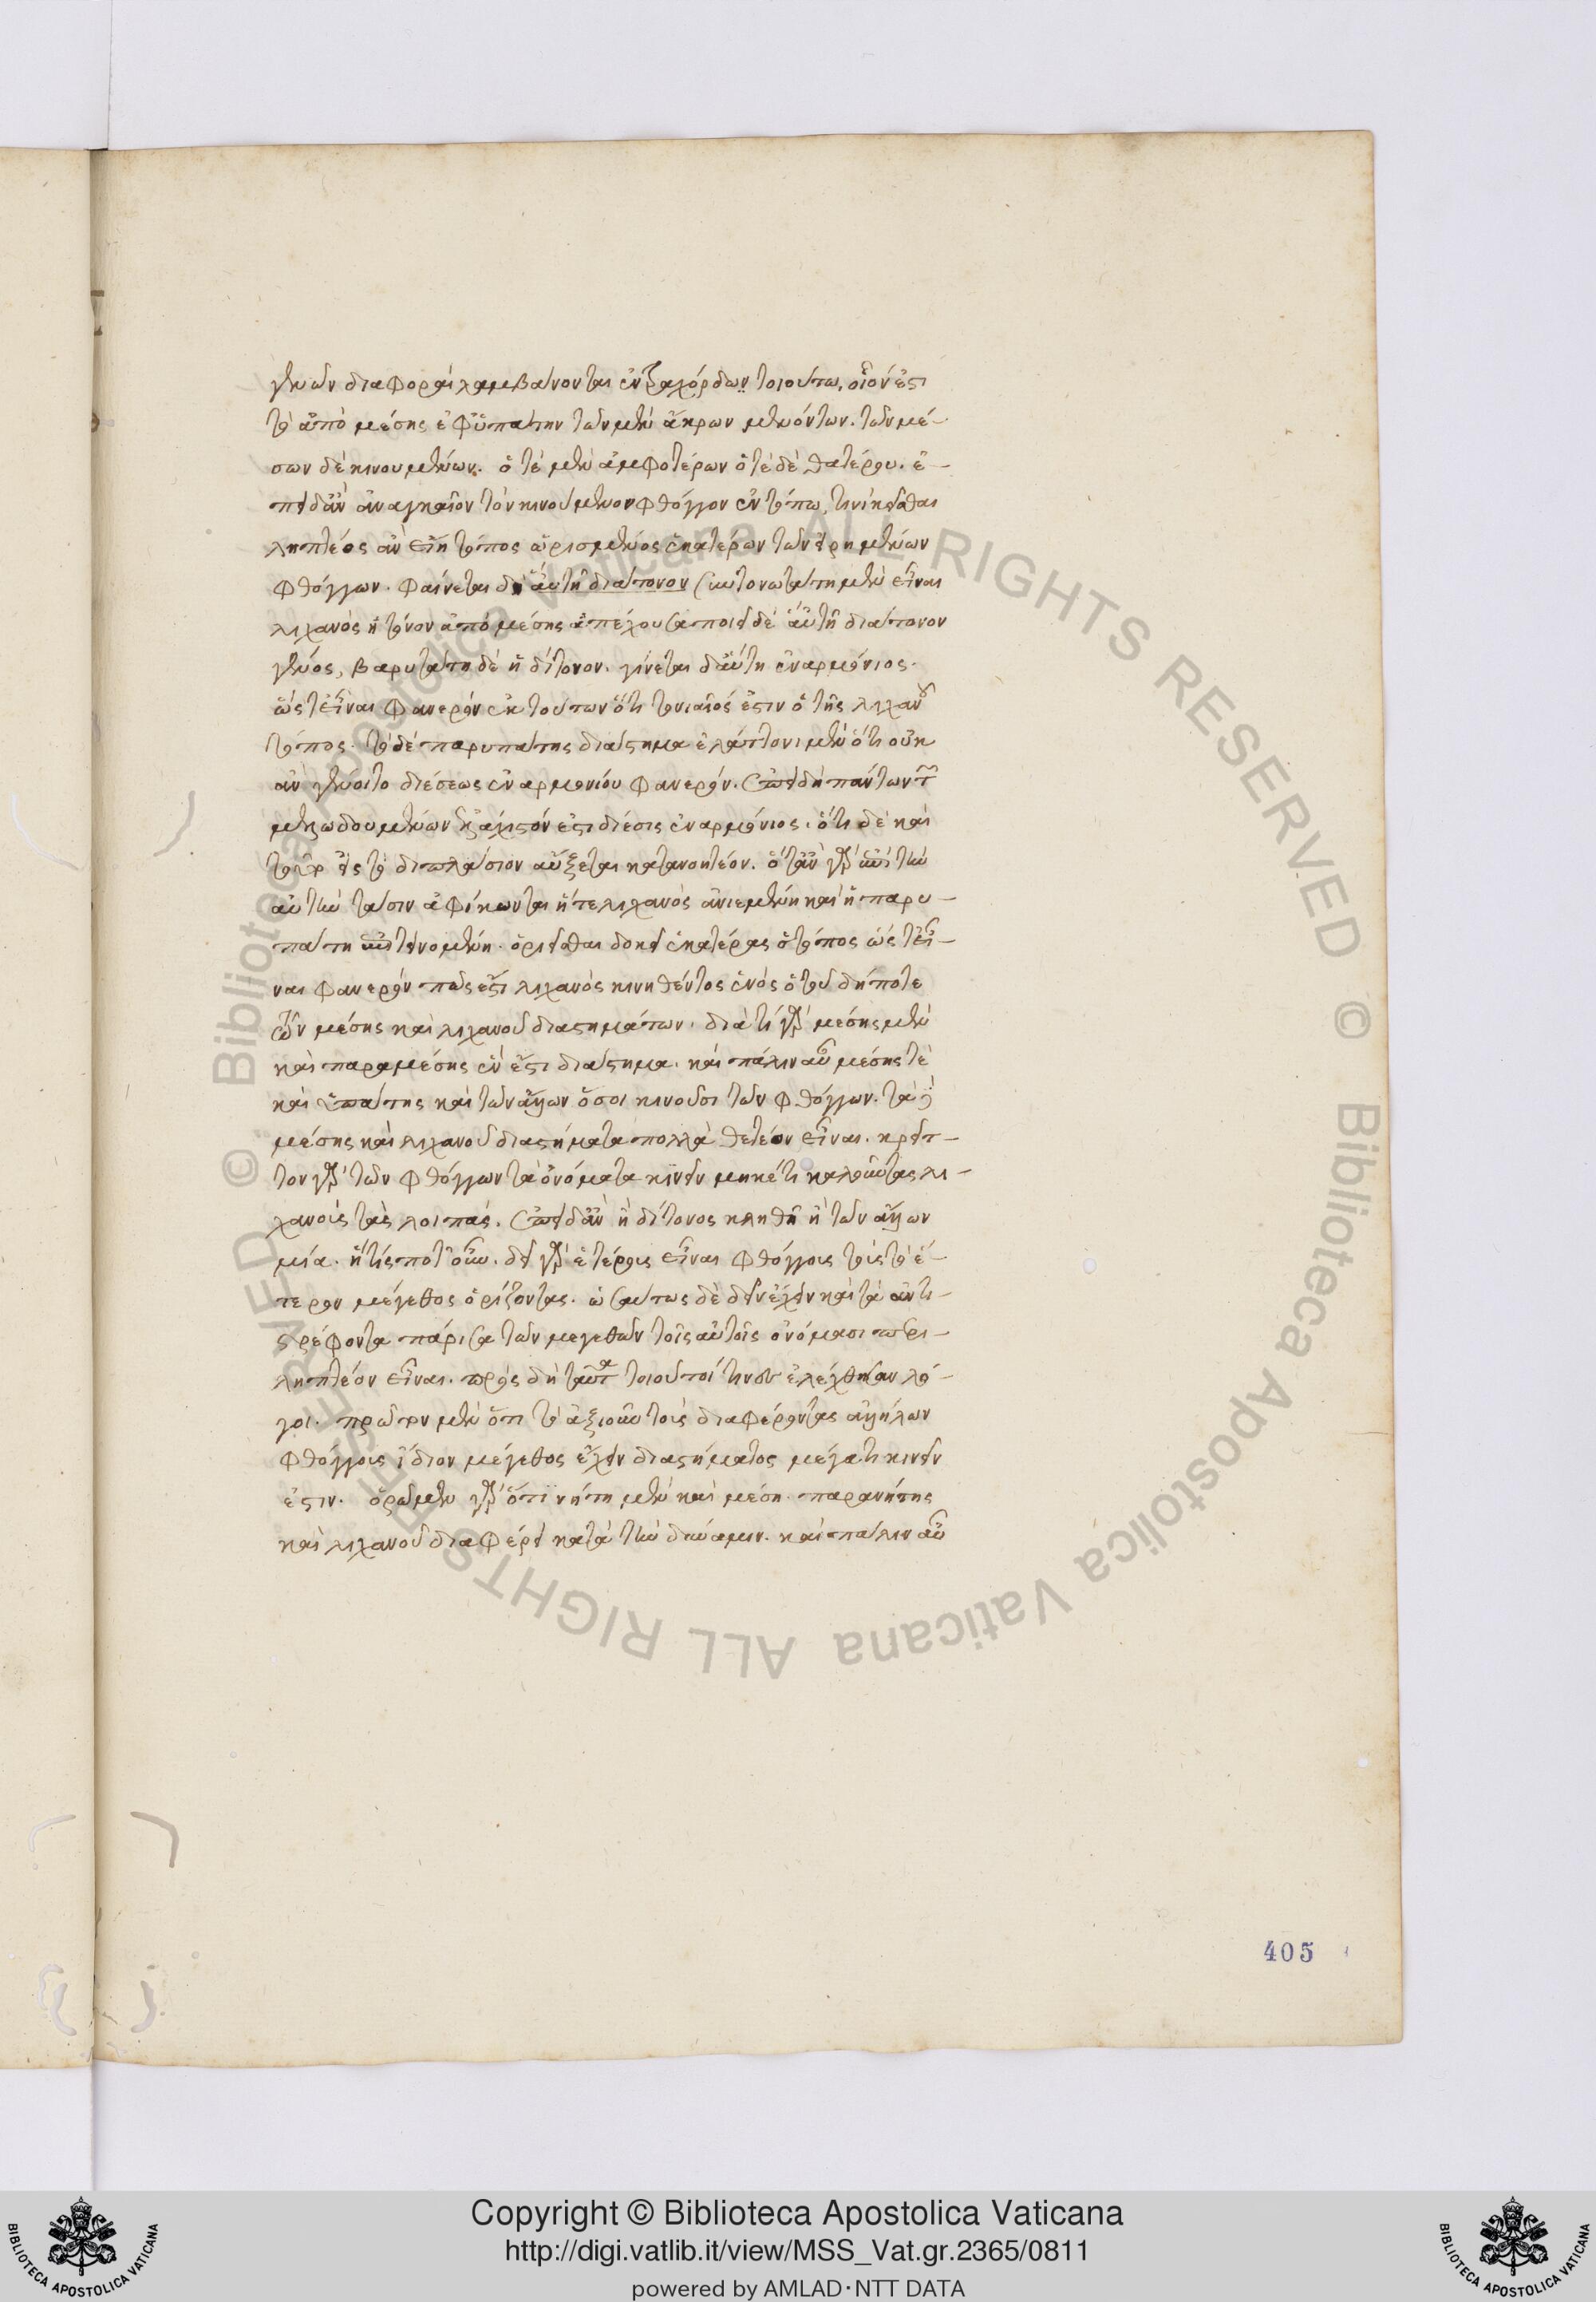 γενῶν διαφοραὶ λαμβάνονται ἐν τετραχόρδῳ τοιούτῳ, οἷόν ἐστι
τὸ ἀπὸ μέσης ἐφ' ὑπάτην τῶν μὲν ἄκρων μενόντων. τῶν μέ-
σων δὲ κινουμένων. ὁτὲ μὲν ἀμφοτέρων ὁτὲ δὲ θατέρου. ἐ-
πεὶ δ' ἀναγκαῖον τὸν κινούμενον φθόγγον ἐν τόπῳ τινὶ κινεῖσθαι
ληπτέος ἂν εἴη τόπος ὡρισμένος ἑκατέρων τῶν εἰρημένων
φθόγγων. φαίνεται δὴ αὕτη διάτονον συντονωτάτη μὲν εἶναι
λιχανὸς ἡ τόνον ἀπὸ μέσης ἀπέχουσα ποιεῖ δὲ αὕτη διάτονον
γένος, βαρυτάτη δὲ ἡ δίτονον. γίνεται δ' αὕτη ἐναρμόνιος.
ὥστ' εἶναι φανερὸν ἐκ τούτων ὅτι τονιαῖός ἐστιν ὁ τῆς λιχανοῦ
τόπος. τὸ δὲ παρυπάτης διάστημα ἔλαττον μὲν ὅτι οὐκ
ἂν γένοιτο διέσεως ἐναρμονίου φανερόν. ἐπειδὴ πάντων τῶν
μελῳδουμένων ἐλάχιστόν ἐστι δίεσις ἐναρμόνιος. ὅτι δὲ καὶ
τοῦτο εἰς τὸ διπλάσιον αὔξεται κατανοητέον. ὅταν γὰρ ἐπὶ τὴν
αὐτὴν τάσιν ἀφίκωνται ἥ τε λιχανὸς ἀνιεμένη καὶ ἡ παρυ-
πάτη ἐπιτεινομένη. ὁρίζεσθαι δοκεῖ ἑκατέρας ὁ τόπος ὥστ' εἶ-
ναι φανερὸν πῶς ἐστι λιχανὸς κινηθέντος ἑνὸς ὁτουδήποτε
τῶν μέσης καὶ λιχανοῦ διαστημάτων. διὰ τί γὰρ μέσης μὲν
καὶ παραμέσης ἕν ἐστι διάστημα. καὶ πάλιν αὖ μέσης τε
καὶ ὑπάτης καὶ τῶν ἄλλων ὅσοι κινοῦσι τῶν φθόγγων. τὰ δὲ
μέσης καὶ λιχανοῦ διαστήματα πολλὰ θετέον εἶναι. κρεῖτ-
τον γὰρ τῶν φθόγγων τὰ ὀνόματα κινεῖν μηκέτι καλοῦντας λι-
χανοὺς τὰς λοιπάς. ἐπειδὰν ἡ δίτονος κληθῇ ἢ τῶν ἄλλων
μία. ἥτις ποτ' οὖν. δεῖ γὰρ ἑτέρους εἶναι φθόγγους τοὺς τὸ ἕ-
τερον μέγεθος ὁρίζοντας. ὡσαύτως δὲ δεῖν ἔχειν καὶ τὰ ἀντι-
στρέφοντα τὰ ἴσα τῶν μεγεθῶν τοῖς αὐτοῖς ὀνόμασι περι-
ληπτέον εἶναι. πρὸς δὴ ταῦτα τοιοῦτοί τινες ἐλέχθησαν λό-
γοι. πρῶτον μὲν ὅτι τὸ ἀξιοῦν τοὺς διαφέροντας ἀλλήλων
φθόγγους ἴδιον μέγεθος ἔχειν διαστήματος μέγα τι κινεῖν
ἐστιν. ὁρῶμεν γὰρ ὅτι νήτη μὲν καὶ μέση παρανήτης
καὶ λιχανοῦ διαφέρει κατὰ τὴν δύναμιν. καὶ πάλιν αὖ
405
Copyright © Biblioteca Apostolica Vaticana
http://digi.vatlib.it/view/MSS_Vat.gr.2365/0811
powered by AMLAD·NTT DATA